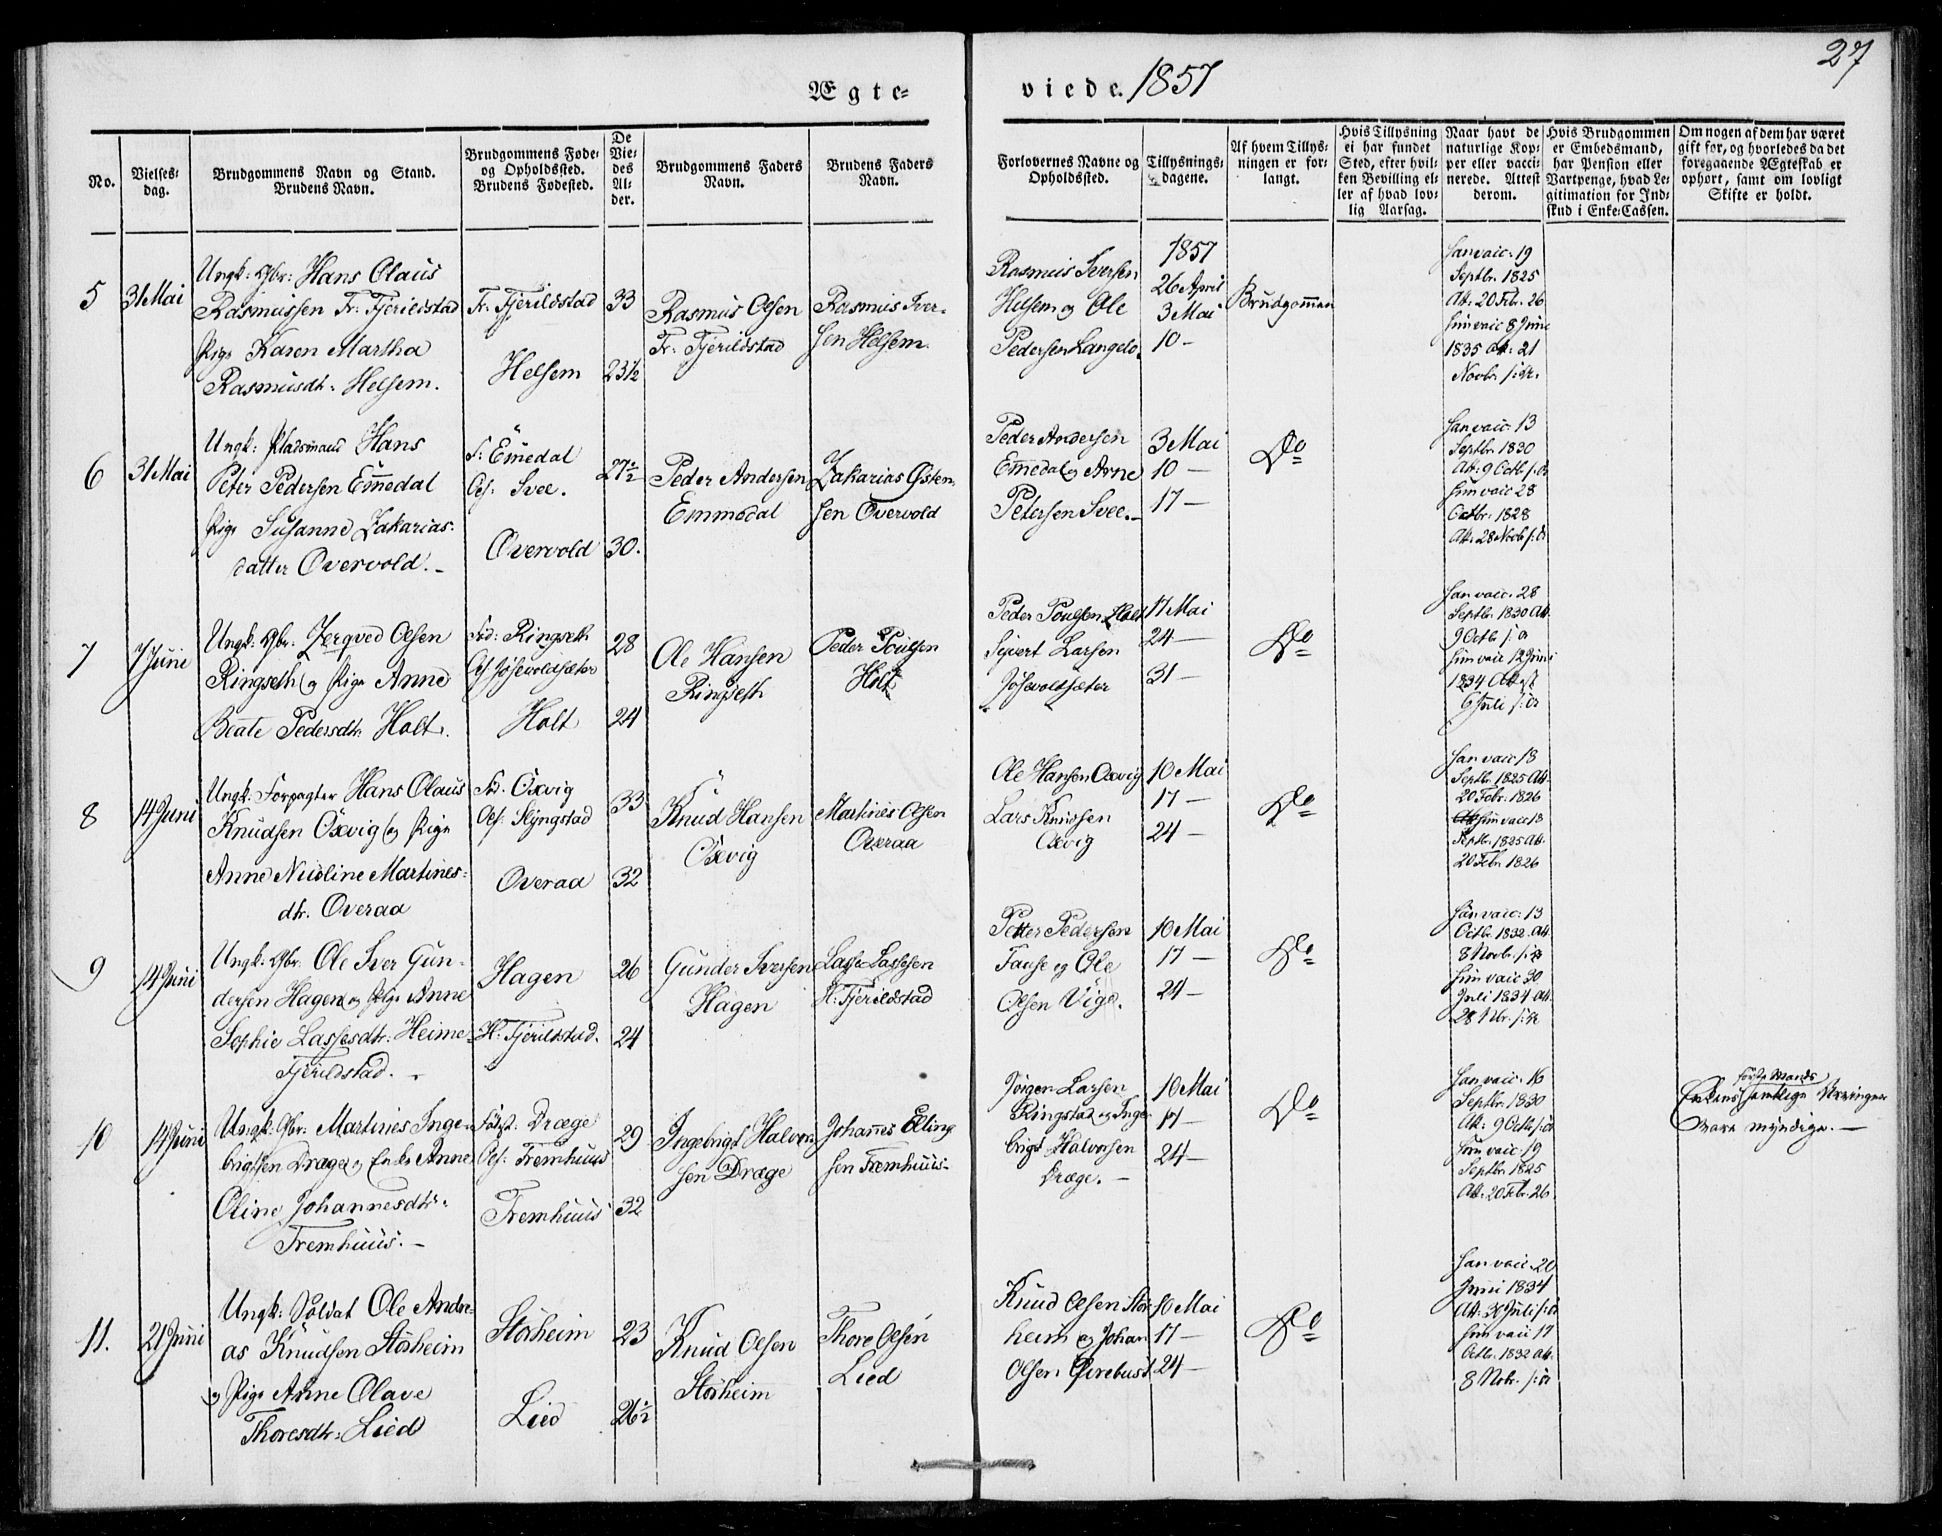 27
Ægte-
viede. 1857
No.
Vielses-
dag.
Brudgommens Navn og Stand.
Brudens Navn.
Brudgommens Føde-
og Opholdssted.
Brudens Fødested.
De
Vie-
des
Al-
der.
Brudgommens Faders
Navn.
Brudens Faders
Navn.
Forlovernes Navne og
Opholdssted.
Tillysnings-
dagene.
Af hvem Tillys-
ningen er for-
langt.
Hvis Tillysning
ei har fundet
Sted, efter hvil-
ken Bevilling el-
ler af hvad lov-
lig Aarsag.
Naar havt de
naturlige Kop-
per eller vacci-
nerede. Attest
derom.
Hvis Brudgommen
er Embedsmand,
har Pension eller
Vartpenge, hvad Le-
gitimation for Ind-
skud i Enke-Cassen.
Om nogen af dem har været
gift før, og hvorledes da det
foregaaende Ægteskab er
ophørt, samt om lovligt
Skifte er holdt.
5
31 Mai
Ungk: Gbr: Hans Olaus
Rasmussen Fr: Fjerildstad
Pige Karen Martha
Rasmusdt: Helsem.
Fr. Fjerildstad
Helsem
33
23½
Rasmus Olsen
Fr: Fjerildstad
Rasmus Iver-
sen Helsem.
Rasmus Iversen
Helsem og Ole
Pedersen Langelo.
1857
26 April
3 Mai
10 —
Brudgommen
Han vacc: 19
Septbr. 1825
Att: 20 Feb. 26
hun vacc 8 Juni
1835 Att: 21
Novb. s: Ar.
6
31 Mai
Ungk: Pladsmand Hans
Peter Pedersen Emedal
Pige Susanne Zakarias-
datter Overvold. —
F: Emedal
Ops: Svee.
Overvold
27½
30.
Peder Andersen
Emmedal
Zakarias Østen-
sen Overvold
Peder Andersen
Emedal og Arne
Petersen Svee. —
3 Mai
10 —
17 —
Do
Han vacc: 13
Septbr. 1830
Att: 9 Octb s: Ar
hun vacc 28
Octbr. 1828
Att: 28 Novb s: Ar
7
7 Juni
Ungk: Gbr. Zerqved Olsen
Ringseth og Pige Anne
Beate Pedersdtr. Holt.
Fød: Ringseth
Holt
28
24
Ole Hansen
Ringseth
Peder Poulsen
Holt
Peder Poulsen Holt
Syvert Larsen
17 Mai
24 —
31 —
Do
Han vacc. 28
Septbr. 1830 Att.
9 Octb s: Ar
hun vacc 12 Juni
1834 Attest
6 Juli s: Ar
8
14 Juni
Ungk: Forpagter Hans Olaus
Knudsen Oxvig og Pige
Anne Nicoline Martines-
dtr. Overaa
Fød. Oxvig
Ops: Slyngstad
Overaa
33
32
Knud Hansen
Oxvig
Martines Olsen
Overaa
Ole Hansen Oxvig
Lars Knudsen
Oxvig
10 Mai
17 —
24 —
Do
Han vacc 18
Septbr. 1825 Att.
20 Febr. 1826
hun vacc 18
Septbr. 1825 Att.
20 Febr. 1826
9
14 Juni
Ungk: Gbr. Ole Iver Gun-
dersen Hagen og Pige Anne
Sophie Lassesdtr: Heime-
Fjerildstad. —
Hagen
H: Fjerildstad.
26
24
Gunder Iversen
Hagen
Lasse Lassesen
H: Fjerildstad
Petter Pedersen
Fause og Ole
Olsen Vige.
10 Mai
17 —
24 —
Do
Han vacc: 13
Octbr. 1832. Att.
8 Novb. s: Ar
hun vacc 30
Juli 1834 Att.
28 Nbr. s: Ar
10
14 Juni
Ungk: Gbr: Martines Inge-
brigtsen Dræge og Enke Anne
Oline Johannesdtr.
Fremhuus. —
Fødst: Dræge
Ops: Fremhuus
Fremhuus
29
32
Ingebrigt Halvor-
sen Dræge
Johannes Elling-
sen Fremhuus —
Jørgen Larsen
Ringstad og Inge-
brigt Halvorsen
Dræge. —
10 Mai
17 —
24 —
Do
Han vacc. 16
Septbr. 1830
Att: 9 Octb s: Ar
hun vacc 19
Septbr. 1825
Att: 20 Feb. 26
første Mands
Enkens samtlige Arvinger
vare myndige. —
11.
21 Juni
Ungk: Soldat Ole Andre-
as Knudsen Storheim
og Pige Anne Olave
Thoresdtr: Lied
Storheim
Lied
23
26½
Knud Olsen
Storheim
Thore Olsen
Lied
Knud Olsen Stor-
heim og Johan
Olsen Øvrebust
10 Mai
17 —
24 —
Do
Han vacc. 20
Juni 1834
Att: 30 Juli s: Ar
hun vacc 17
Octb. 1832 Att.
8 Nvbr. s: Ar